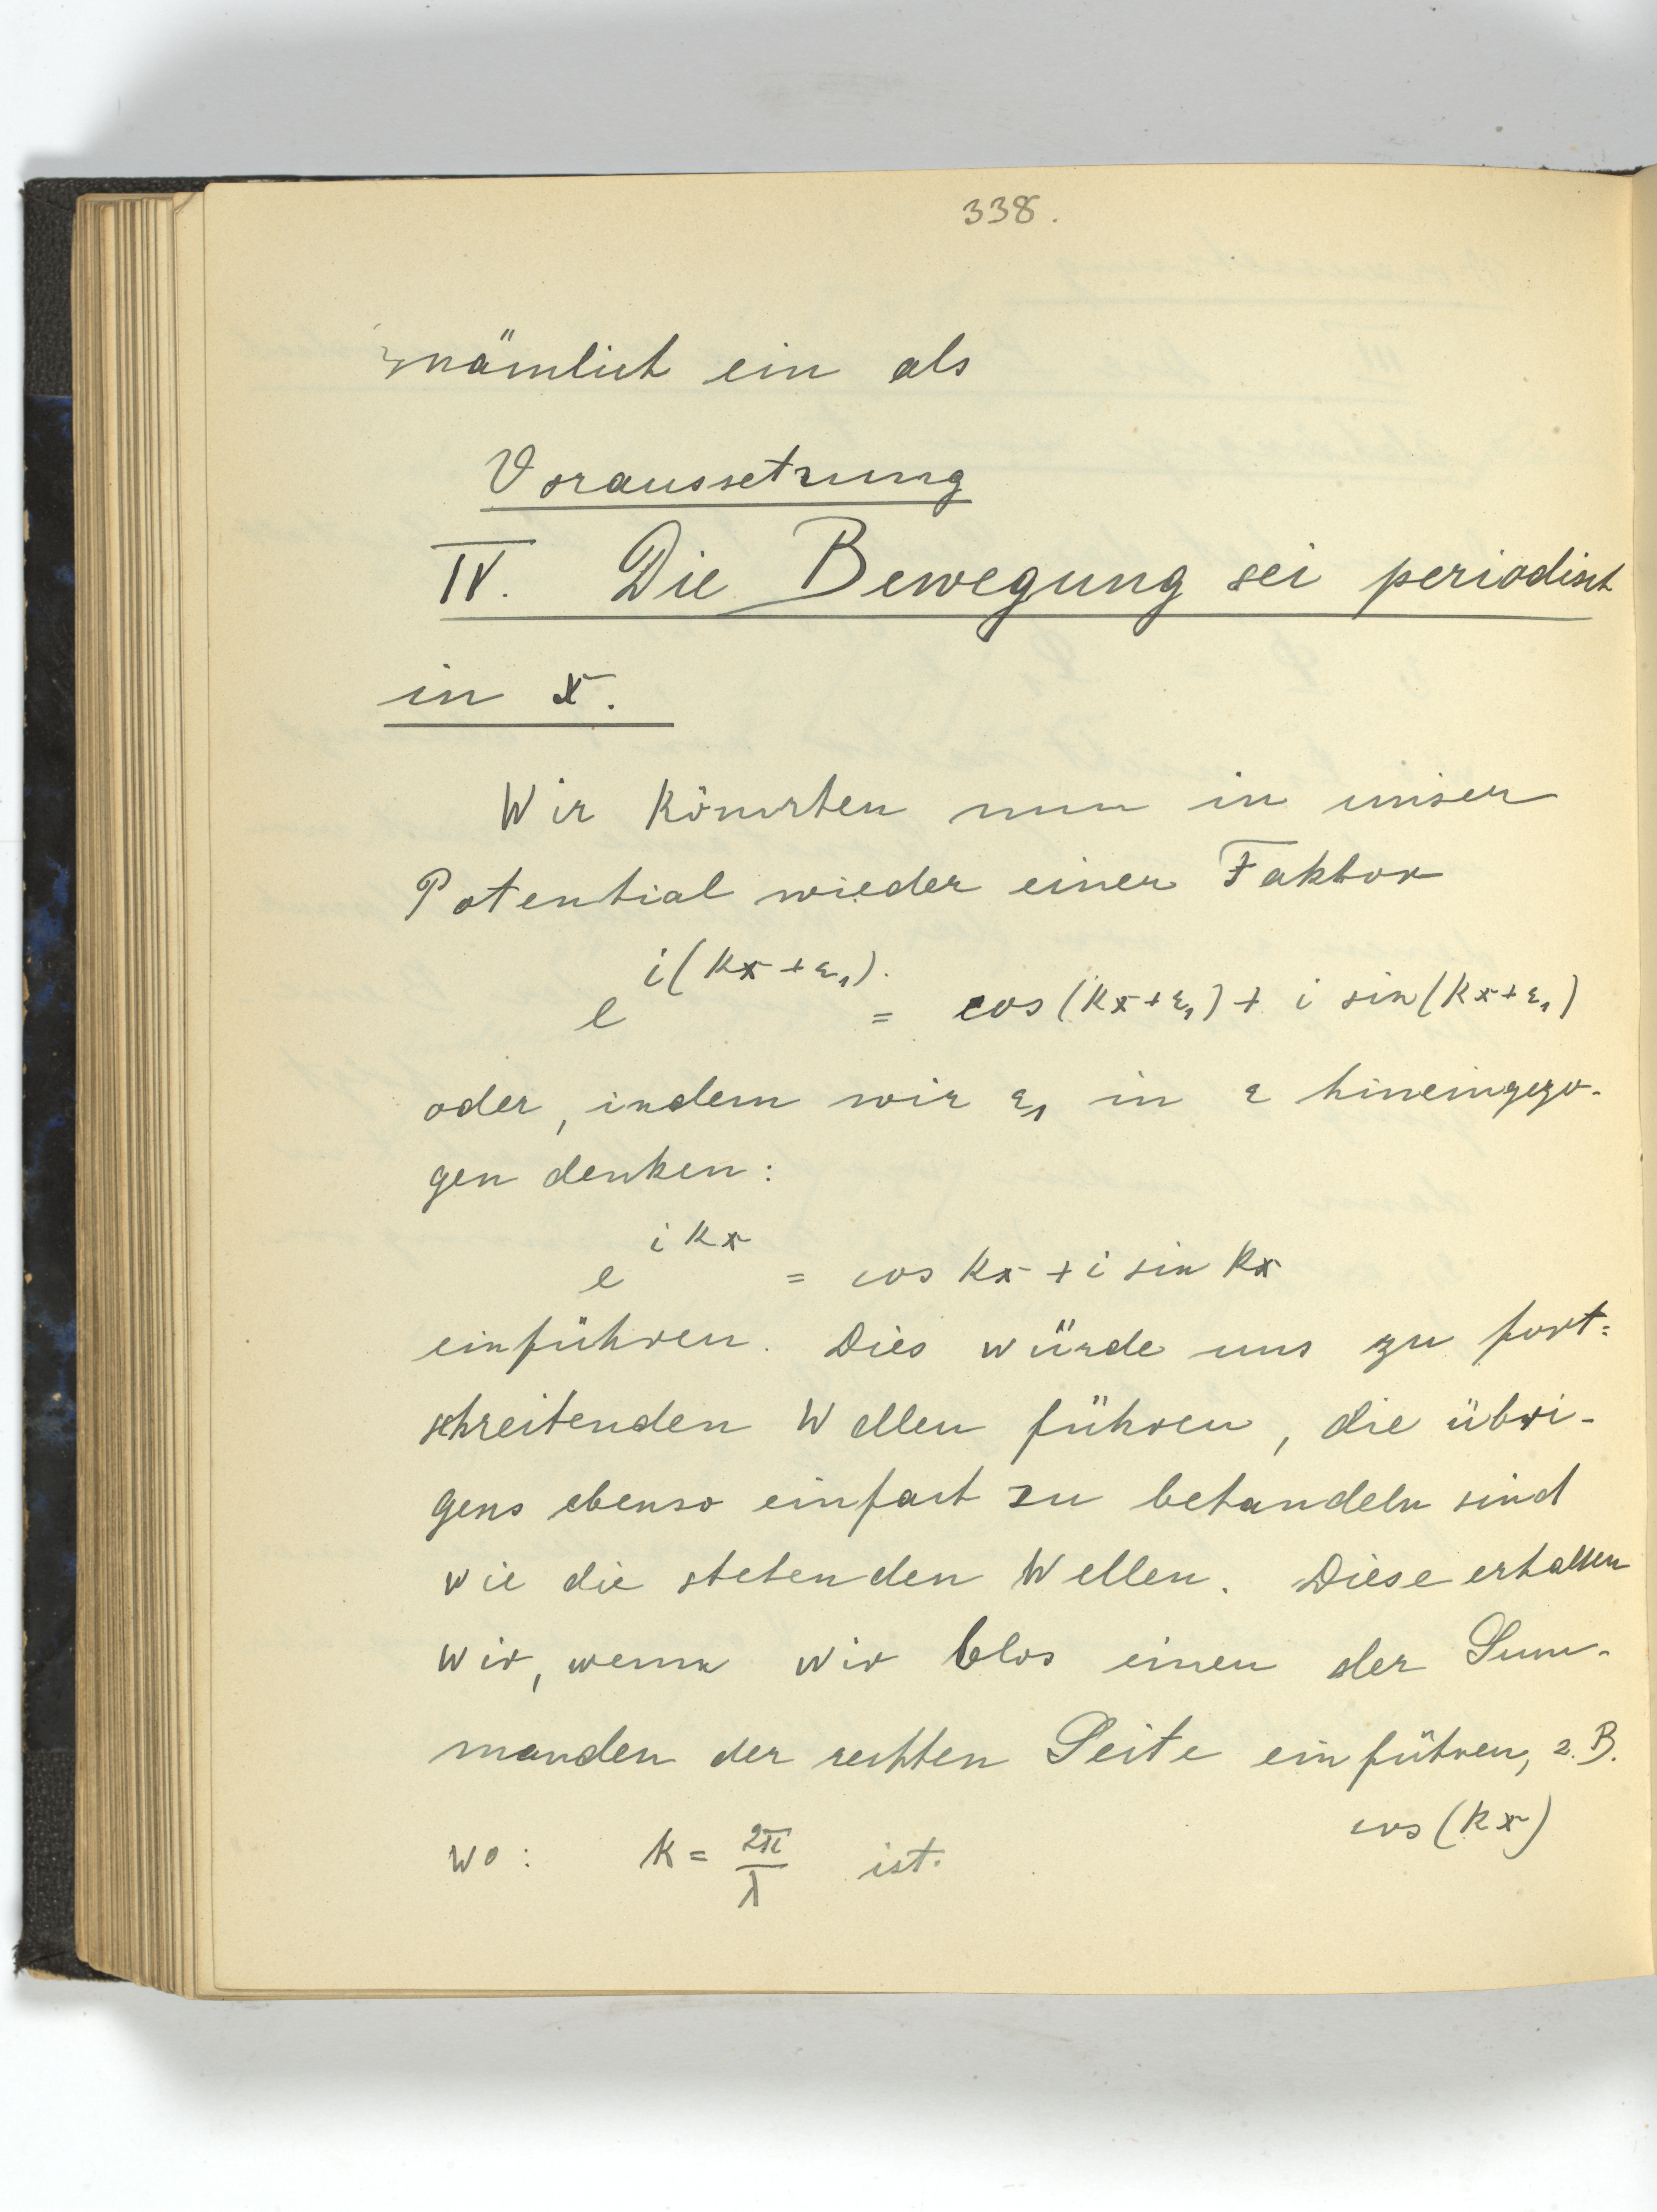 338.
nämlich ein als
Voraussetzung
IV. Die Bewegung sei periodisch
in x.
Wir könnten nun in unser
Potential wieder einen Faktor
e^{i(kx+ε₁)} = cos(kx+ε₁) + i sin(kx+ε₁)
oder, indem wir ε₁ in ε hineingezo-
gen denken:
e^{ikx} = cos kx + i sin kx
einführen. Dies würde uns zu fort=
schreitenden Wellen führen, die übri-
gens ebenso einfach zu behandeln sind
wie die stehenden Wellen. Diese erhalten
wir, wenn wir blos einen der Sum-
manden der rechten Seite einführen, z.B.
cos(kx)
wo: k = 2π/λ ist.